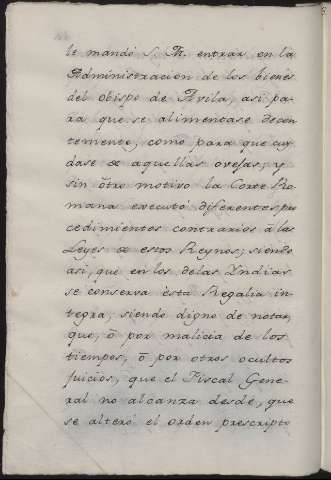 le mandó S. M. entrar en la
Administracion de los bienes
del obispo de Avila, asi pa-
ra que se alimentase decen-
temente, como para que cuy-
dase de aquellas ovejas; y
sin ôtro motivo la Corte Ro-
mana executó diferentes pro
cedimientos contrarios â las
Leyes de estos Reynos; siendo
asi, que en los de las Yndias
se conserva êsta Regalia in-
tegra; siendo digno de notar,
que, ô por malicia de los
tiempos, ô por otros ocultos
juicios, que el Fiscal Gene-
ral no alcanza desde, que
se alteró el orden prescripto